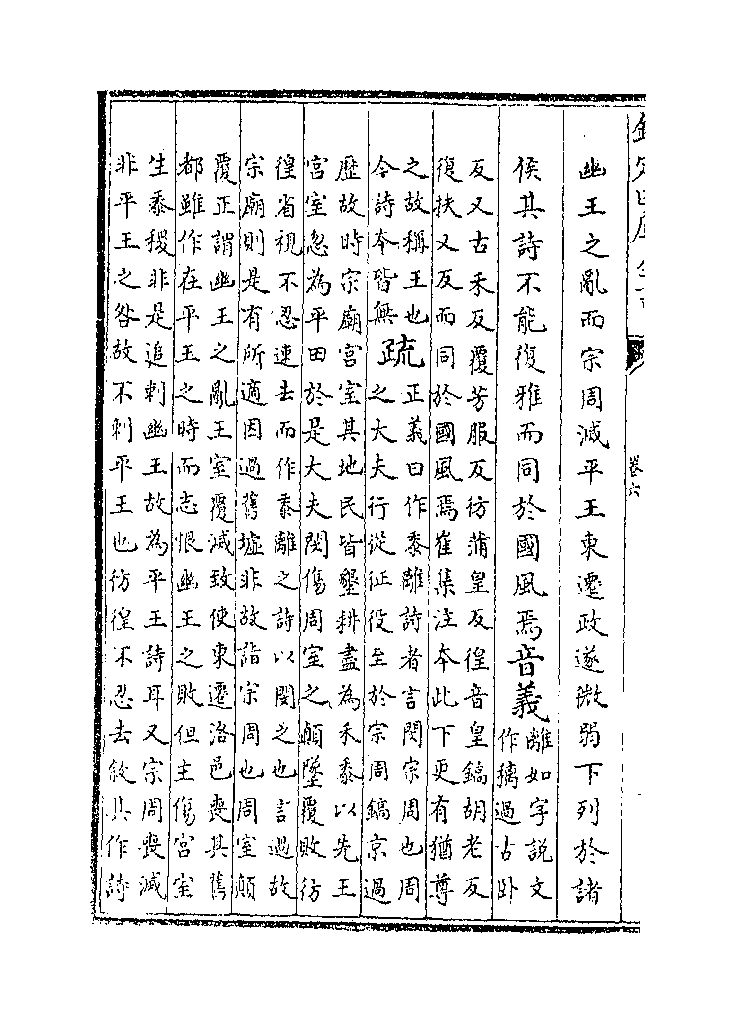 卷六
幽王之亂而宗周滅平王東遷政遂微弱下列於諸
侯其詩不能復雅而同於國風焉音義
離如字説文
作過古卧
反又古禾反覆芳服反彷蒲皇反徨音皇鎬胡老反
復扶又反而同於國風焉崔集注本此下更有猶尊
之故稱王也
今詩本皆無
疏
正義曰作黍離詩者言閔宗周也周
之大夫行從征役至於宗周鎬京過
歴故時宗廟宮室其地民皆墾耕盡為禾黍以先王
宮室忽為平田於是大夫閔傷周室之顛墜覆敗彷
徨省視不忍速去而作黍離之詩以閔之也言過故
宗廟則是有所適因過舊墟非故詣宗周也周室顛
覆正謂幽王之亂王室覆滅致使東遷洛邑喪其舊
都雖作在平王之時而志恨幽王之敗但主傷宮室
生黍稷非是追刺幽王故為平王詩耳又宗周喪滅
非平王之咎故不刺平王也彷徨不忍去叙其作詩